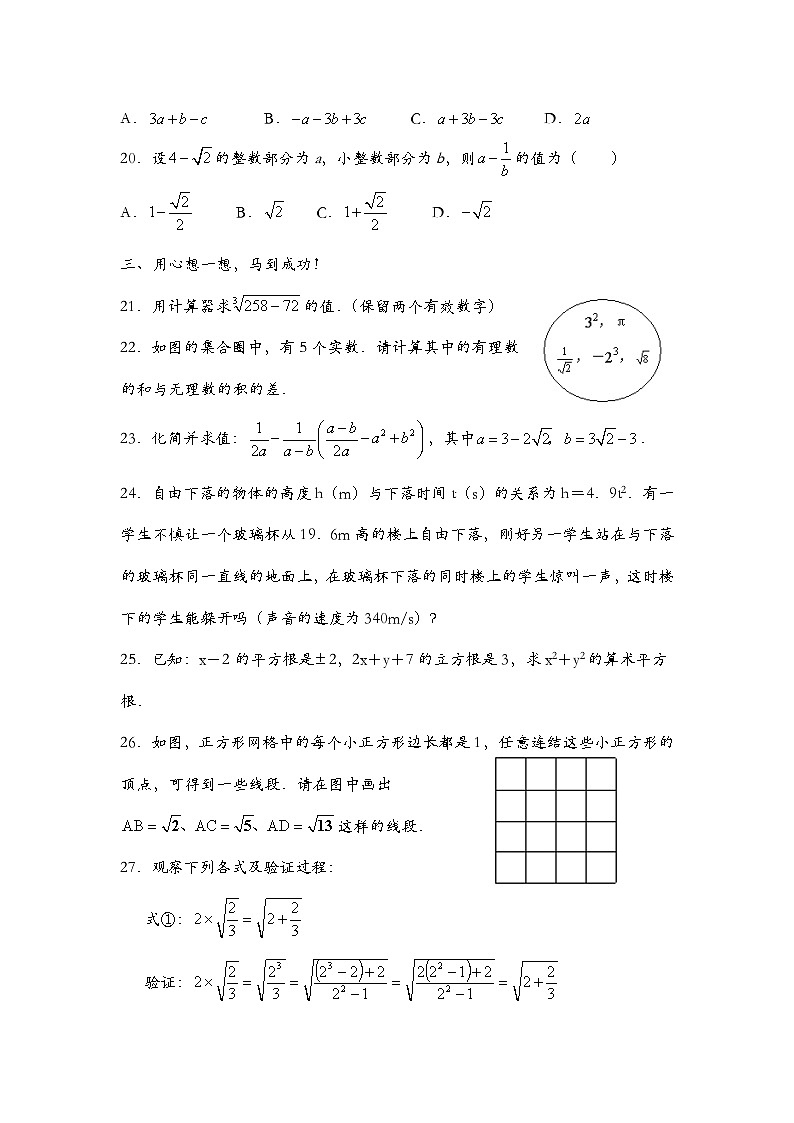 A．3a+b−c B．−a−3b+3c C．a+3b−3c D．2a
20．设4−√2的整数部分为a，小整数部分为b，则a−1/b的值为（ ）
A．1−√2/2 B．√2 C．1+√2/2 D．−√2
三、用心想一想，马到成功！
21．用计算器求∛(258−72)的值．（保留两个有效数字）
22．如图的集合圈中，有5个实数．请计算其中的有理数
的和与无理数的积的差．
3²，π
1/√2，－2³，√8
23．化简并求值：1/(2a)−1/(a−b)((a−b)/(2a)−a²+b²)，其中a=3−2√2，b=3√2−3．
24．自由下落的物体的高度h（m）与下落时间t（s）的关系为h＝4．9t²．有一
学生不慎让一个玻璃杯从19．6m高的楼上自由下落，刚好另一学生站在与下落
的玻璃杯同一直线的地面上，在玻璃杯下落的同时楼上的学生惊叫一声，这时楼
下的学生能躲开吗（声音的速度为340m/s）？
25．已知：x－2的平方根是±2，2x＋y＋7的立方根是3，求x²＋y²的算术平方
根．
26．如图，正方形网格中的每个小正方形边长都是1，任意连结这些小正方形的
顶点，可得到一些线段．请在图中画出
AB＝√2、AC＝√5、AD＝√13这样的线段．
27．观察下列各式及验证过程：
式①：2×√(2/3)=√(2+2/3)
验证：2×√(2/3)=√(2³/3)=√(((2³−2)+2)/(2²−1))=√((2(2²−1)+2)/(2²−1))=√(2+2/3)